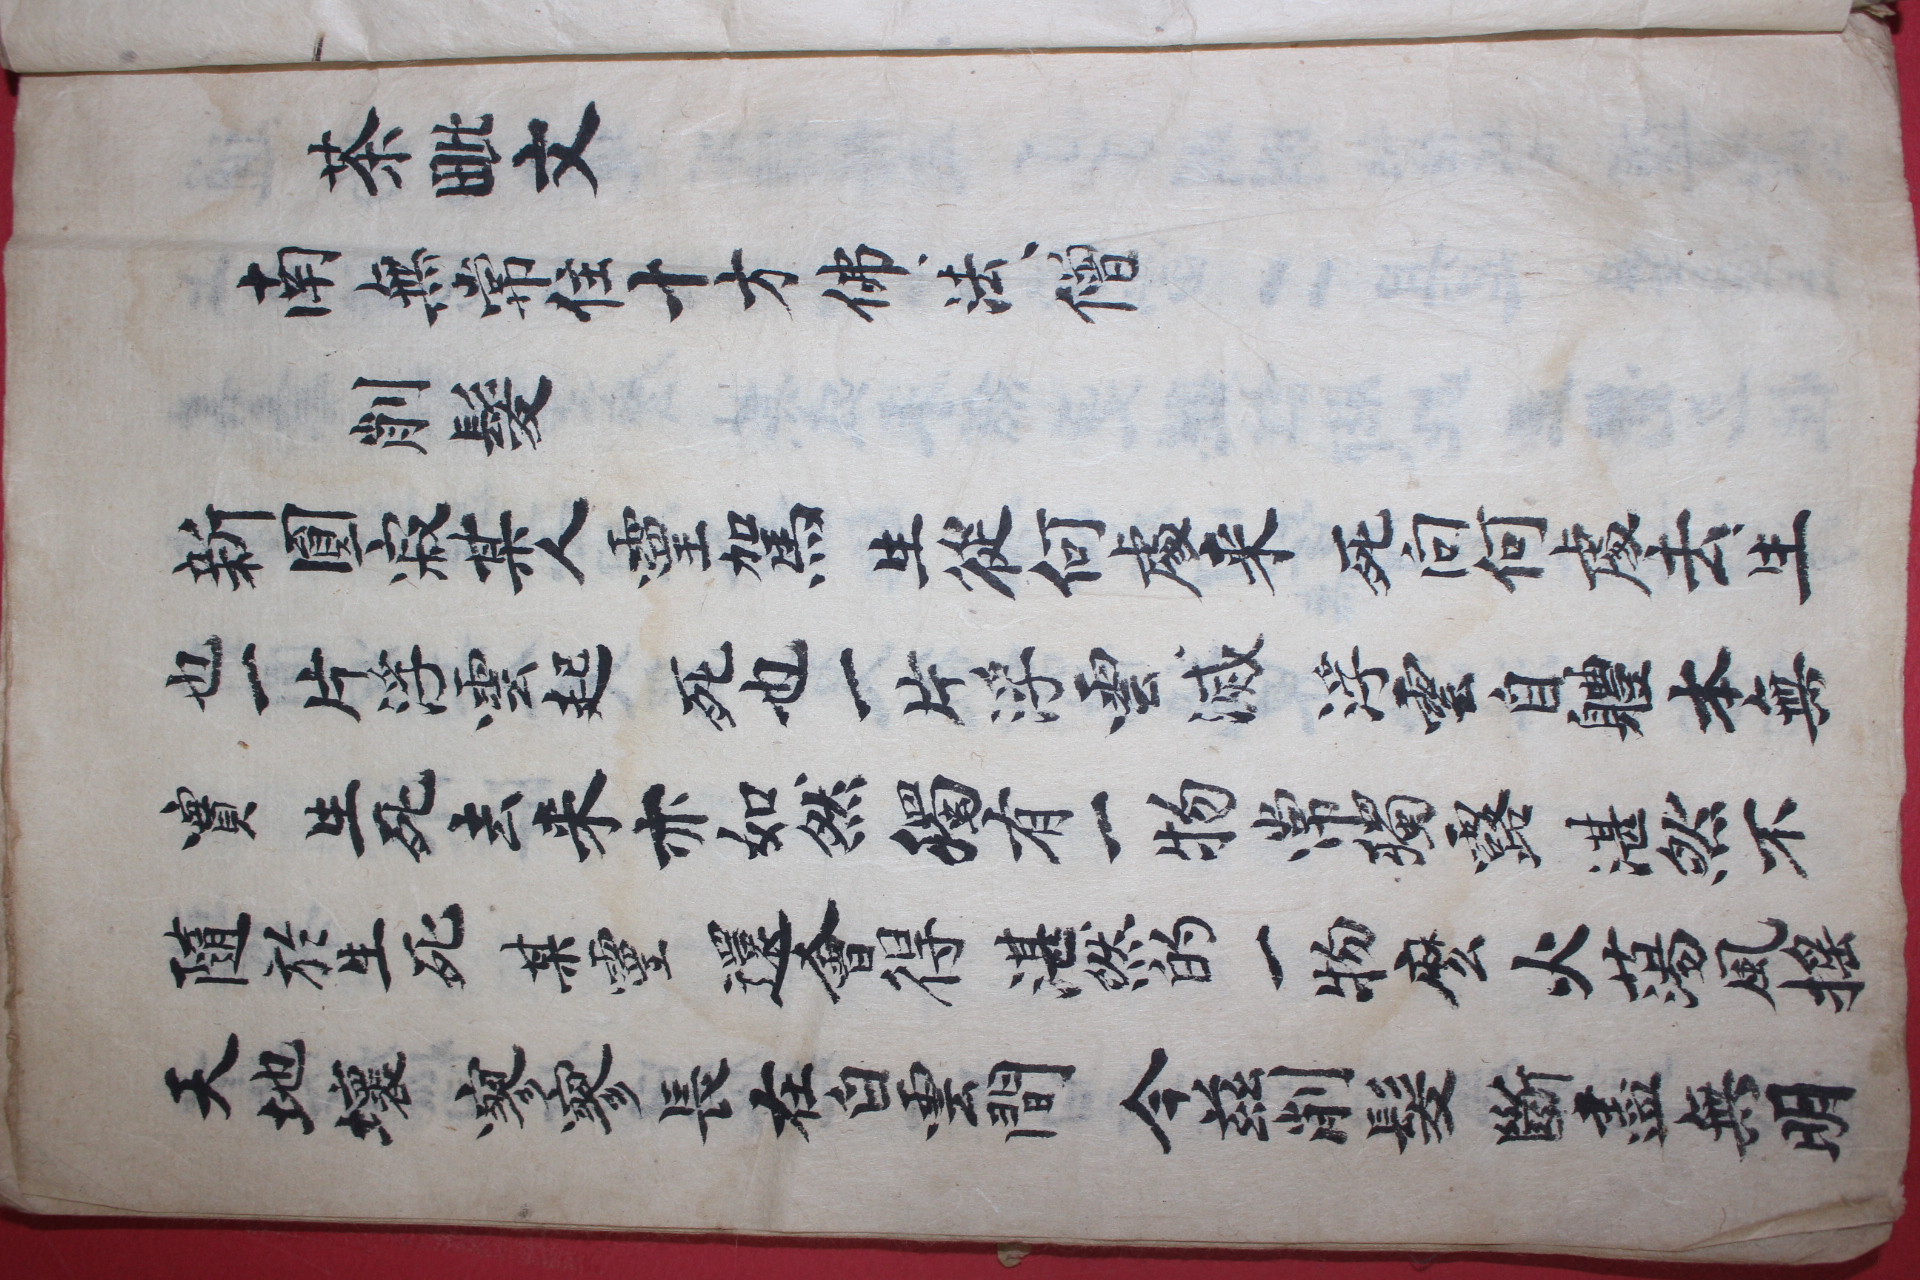 茶毗文
南無常住十方佛法僧
削髮
新圓寂某人靈 加焉 生從何處来 死向何處去 生
也一片浮雲起 死也一片浮雲滅 浮雲自體本無
實 生死去来亦如然 獨有一物常獨露 湛然不
隨於生死 某靈 還會得 湛然的一物麽 火蕩風摇
天地壞 寥寥長在白雲間 今玆削髮 斷盡無明